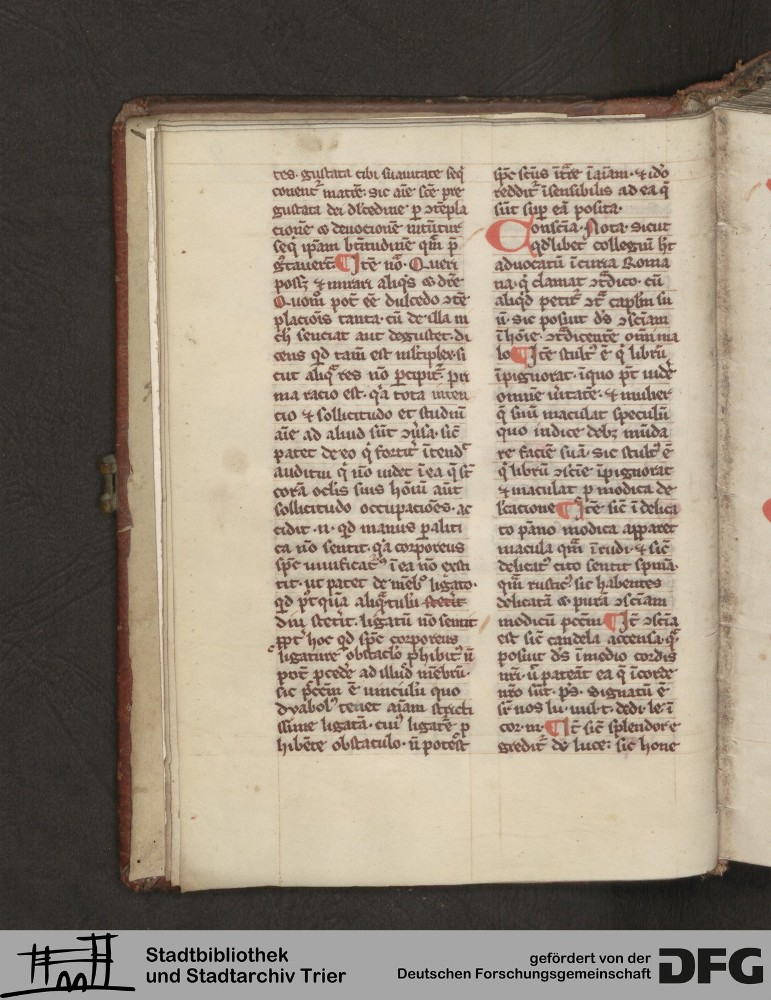 tes. gustata cibi suauitate seq̄
conent᷑ matrē: sic aīe scē pre
gustata dei dulcedine ꝑ ɔtēpla
cionē ⁊ deuocionē
seq̄ ip̄am btītudinē q̄m p̄
gͦtauert̄. ¶ Itē nō. Queri
poss; ⁊ mirari aliqͥs
Quomͦ pot̄ eē dulcedo ɔtē
placiōis tanta. cū de illa m
ch senciat aut degustet. di
cens qd tam̄ est multiplex. si
cut aliq̄ res nō ꝑcipit᷑. pri
ma racio est. qͥa tota inten
cio ⁊ sollicitudo et studiū
aīe ad aliud sūt ɔuͥsa. sic̄
patet de eo qͥ fortit᷑ ītendͭ
auditui qͥ nō uidet ī ea q̄ st̄
corā oclis suis hōiū aūt
sollicitudo occupatiōes. ac
cidit .n. qd manus ꝑaliti
ca nō sentit. qͥa corporeus
sp̄c uiuificatͥuͥ ī ea nō exsi
tit. ut patet de mēbͦ ligato.
qd pͭqͣ aliqͣtulū
diu steͥit. ligatū nō sentit
ꝓpt̄ hoc qd sp̄c corporeus
ligature obstaclo ꝓhibitͥ n̄
pot̄ ꝓcedͤe ad illud mēbrū.
sic pͨcm̄ ē uinculū quo
dyabolͥ tenet aīam stricti
ssime ligatā. cuiͥ ligatͤe ꝓ
hibēte obstaculo. n̄ potest
sp̄c scūs ītͣre ī aīam. ⁊ idͦo
reddit᷑ īsensibilis ad ea q̄
sūt suꝑ eā posita.
Consciā. Nota. sicut
qdͥlibet collegiū ht̄
aduocatū ī curia Roma
na. qͥ clamat ɔtͣdico. cū
aliqͥd petit᷑ ɔtͣ capl̄m su
ū. sic posuit ds̄ ɔsciam
ī hōie. ɔtͣdicentē omī ma
lo ¶ Itē stultͥ ē qͥ librū
īpignorat. ī quo pͭ uidͤe
omnē uͥitatē. ⁊ mulier
q̄ suū maculat speculū
quo iudice debꝫ mūda
re faciē suā. Sic stultͥ ē
qͥ librū ɔsciē īpignorat
⁊ maculat ꝓ modica de
lͨcacione ¶ Itē sic̄ ī delica
to pāno modica apparet
macula qͣm ī rudi. ⁊ sic̄
delicatͥ cito sentit spinā.
qͣm rusticͥ. sic habentes
delicatā ⁊ purā ɔsciam
modicū pcc̄m ¶ Itē ɔscīa
est sic̄ candela accensa. qͣ
posuit ds̄ ī medio cordis
nr̄i. ū pateāt ea q̄ ī corde
nr̄o sūt. ps̄. Signatū ē
sr̄ nos lu. uul. t. dedi. le. ī
cor. m. ¶ Itē sic̄ splendor e
gredit᷑ de luce: sic̄ hone
Stadtbibliothek
und Stadtarchiv Trier
gefördert von der
Deutschen Forschungsgemeinschaft
DFG